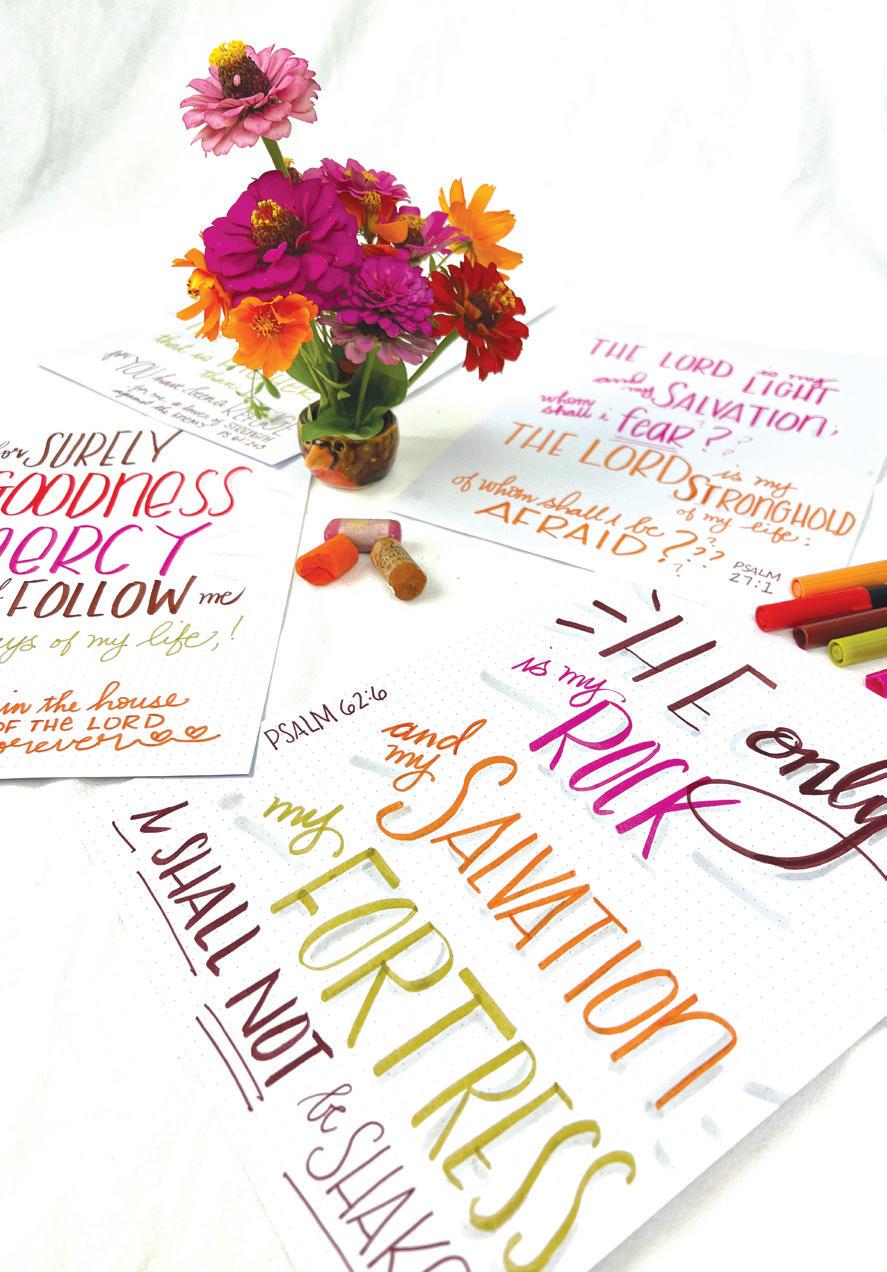 that so
than
for YOU have been a
for me, a tower of STRENGTH
against the ENEMY PS 61:2+3
THE LORD is my
LIGHT
and my SALVATION;
whom
shall i fear???
THE LORD is my
STRONGHOLD
of my life:
of whom shall i be
AFRAID???
PSALM
27:1
for SURELY
GOODNESS
MERCY
FOLLOW me
of my life,!
in the house
OF THE LORD
forever
HE only
is my
ROCK
and
my SALVATION
my
FORTRESS
I SHALL NOT be SHAK
PSALM 62:6